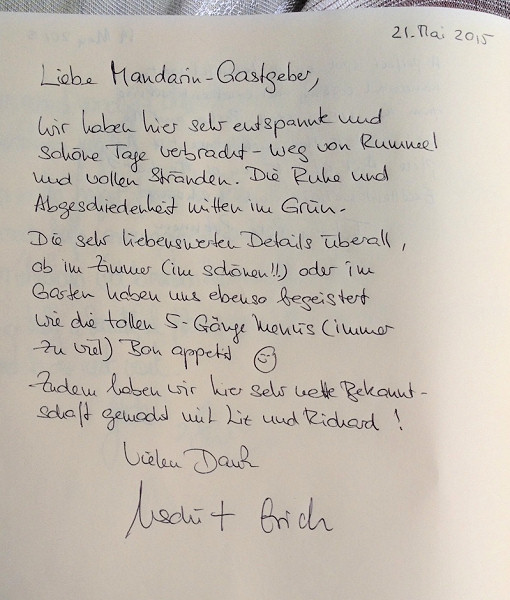 21. Mai 2015
Liebe Mandarin-Gastgeber,
wir haben hier sehr entspannte und
schöne Tage verbracht - weg von Rummel
und vollen Stränden. Die Ruhe und
Abgeschiedenheit mitten im Grün.
Die sehr liebenswerten Details überall,
ob im Zimmer (im schönen!!) oder im
Garten haben uns ebenso begeistert
wie die tollen 5-Gänge Menüs (immer
zu viel) Bon appetit
Zudem haben wir hier sehr nette Bekannt-
schaft gemacht mit Liz und Richard!
Vielen Dank
Uschi + Erich